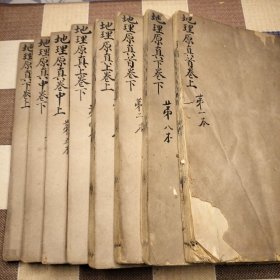 地理原真首卷上
第一本
地理原真下卷下
廿第八本
地理原真首卷下
第二本
地理原真上卷上
地理原真上卷下
地理原真卷中上
地理原真中卷下
地理原真下卷上